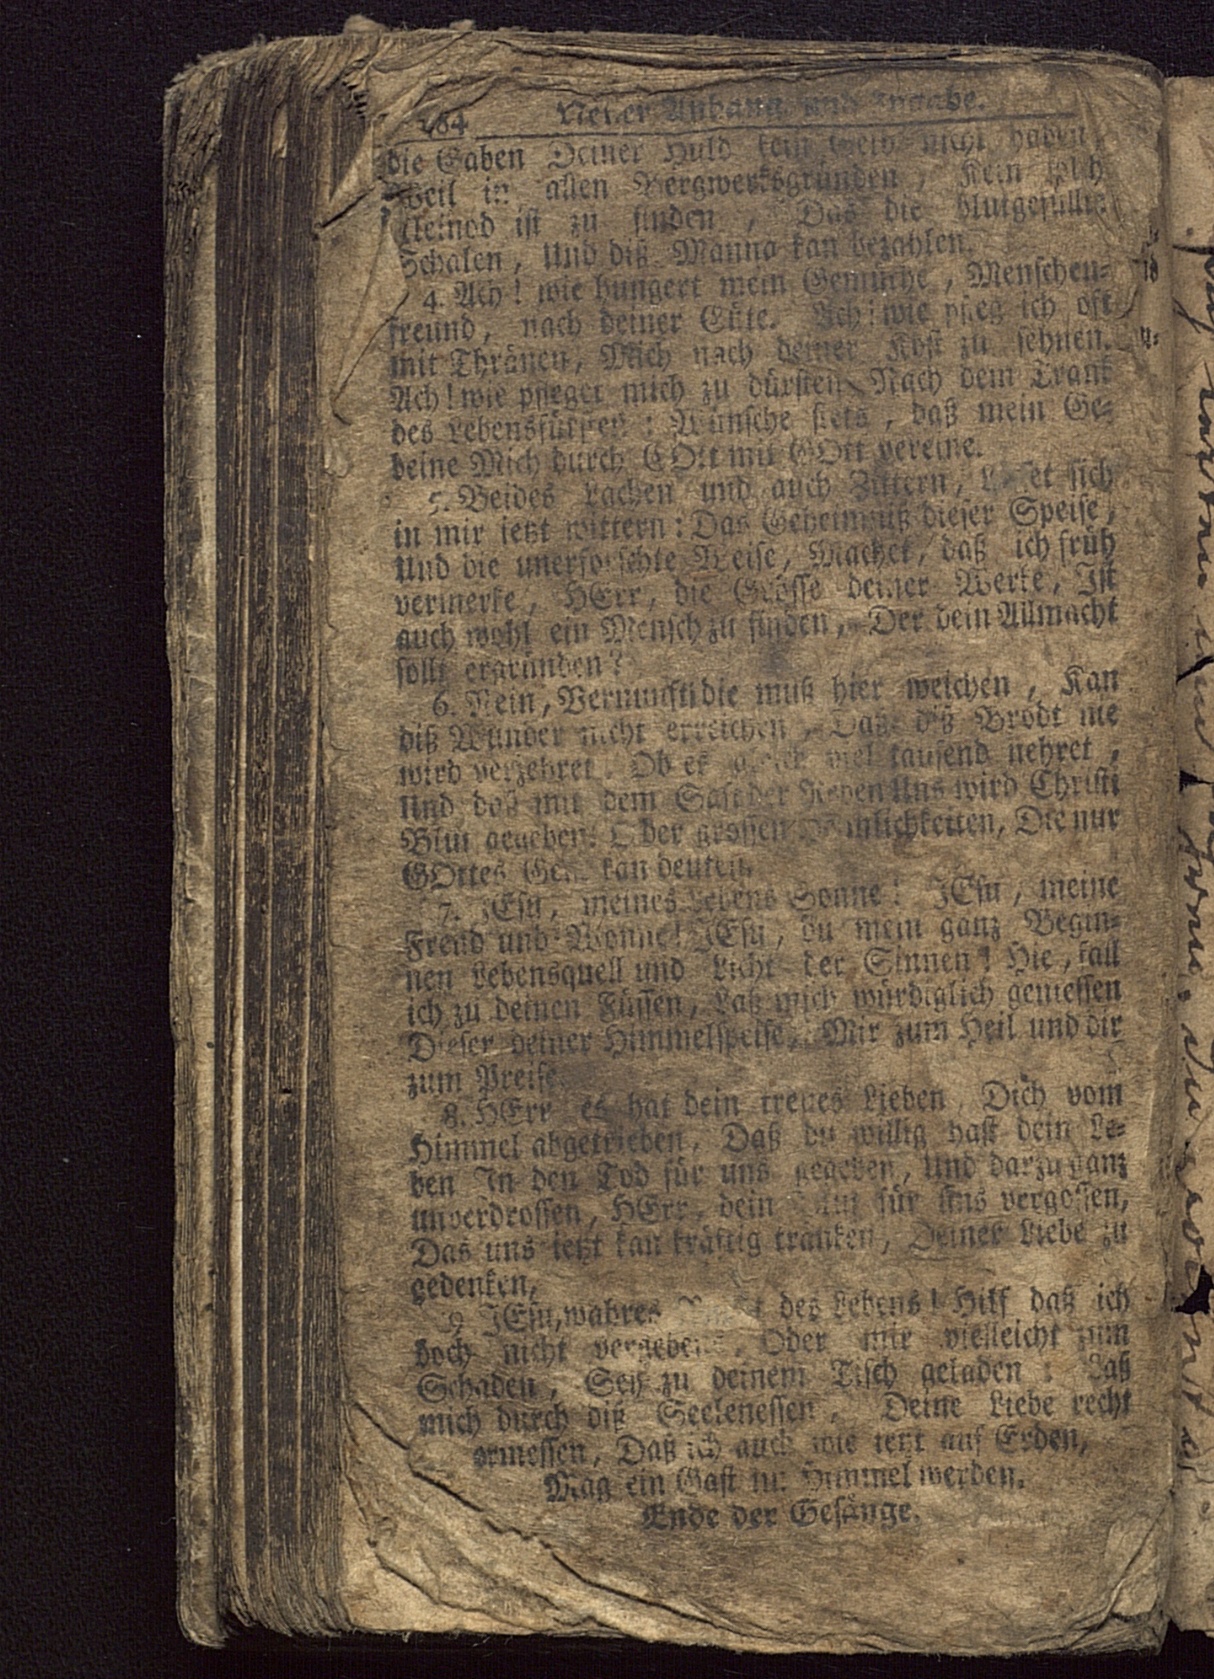 Neuer Anhang und Zugabe.
die Gaben Deiner Huld kein Geld nicht haben,
Weil in allen Bergwerksgründen, Kein solch
Kleinod ist zu finden, Das die blutgefüllte
Schalen, Und diß Manna kan bezahlen.
4. Ach! wie hungert mein Gemüthe, Menschen-
freund, nach deiner Güte. Ach! wie pfleg ich oft
mit Thränen, Mich nach deiner Kost zu sehnen.
Ach! wie pfleget mich zu dürsten Nach dem Trank
des Lebensfürsten: Wünsche stets, daß mein Ge-
beine Mich durch GOtt mit GOtt vereine.
5. Beides Lachen und auch Zittern, Lässet sich
in mir ietzt wittern: Das Geheimnuß dieser Speise,
Und die unerforschte Weise, Machet, daß ich früh
vermerke, HErr, die Grösse deiner Werke, Ist
auch wohl ein Mensch zu finden, Der dein Allmacht
sollt ergründen?
6. Nein, Vernunft die muß hier weichen, Kan
diß Wunder nicht erreichen, Daß diß Brodt nie
wird verzehret, Ob es gleich viel tausend nehret,
Und daß mit dem Saft der Reben Uns wird Christi
Blut gegeben. O der grossen Heimlichkeiten, Die nur
GOttes Geist kan deuten.
7. JEsu, meines Lebens Sonne! JEsu, meine
Freud und Wonne! JEsu, du mein ganz Begin-
nen Lebensquell und Licht der Sinnen! Hie, fall
ich zu deinen Füssen, Laß mich würdiglich geniessen
Dieser deiner Himmelspeise, Mir zum Heil und dir
zum Preise
8. HErr es hat dein treues Lieben Dich vom
Himmel abgetrieben, Daß du willig hast dein Le-
ben In den Tod für uns gegeben, Und darzu ganz
unverdrossen, HErr, dein Blut für uns vergossen,
Das uns ietzt kan kräftig tränken, Deiner Liebe zu
gedenken,
9 JEsu, wahres des Lebens! Hilf daß ich
doch nicht vergebens, Oder mir vielleicht zum
Schaden, Sey zu deinem Tisch geladen: Laß
mich durch diß Seelenessen, Deine Liebe recht
ermessen, Daß ich auch wie ietzt auf Erden,
Mag ein Gast im Himmel werden.
Ende der Gesänge.